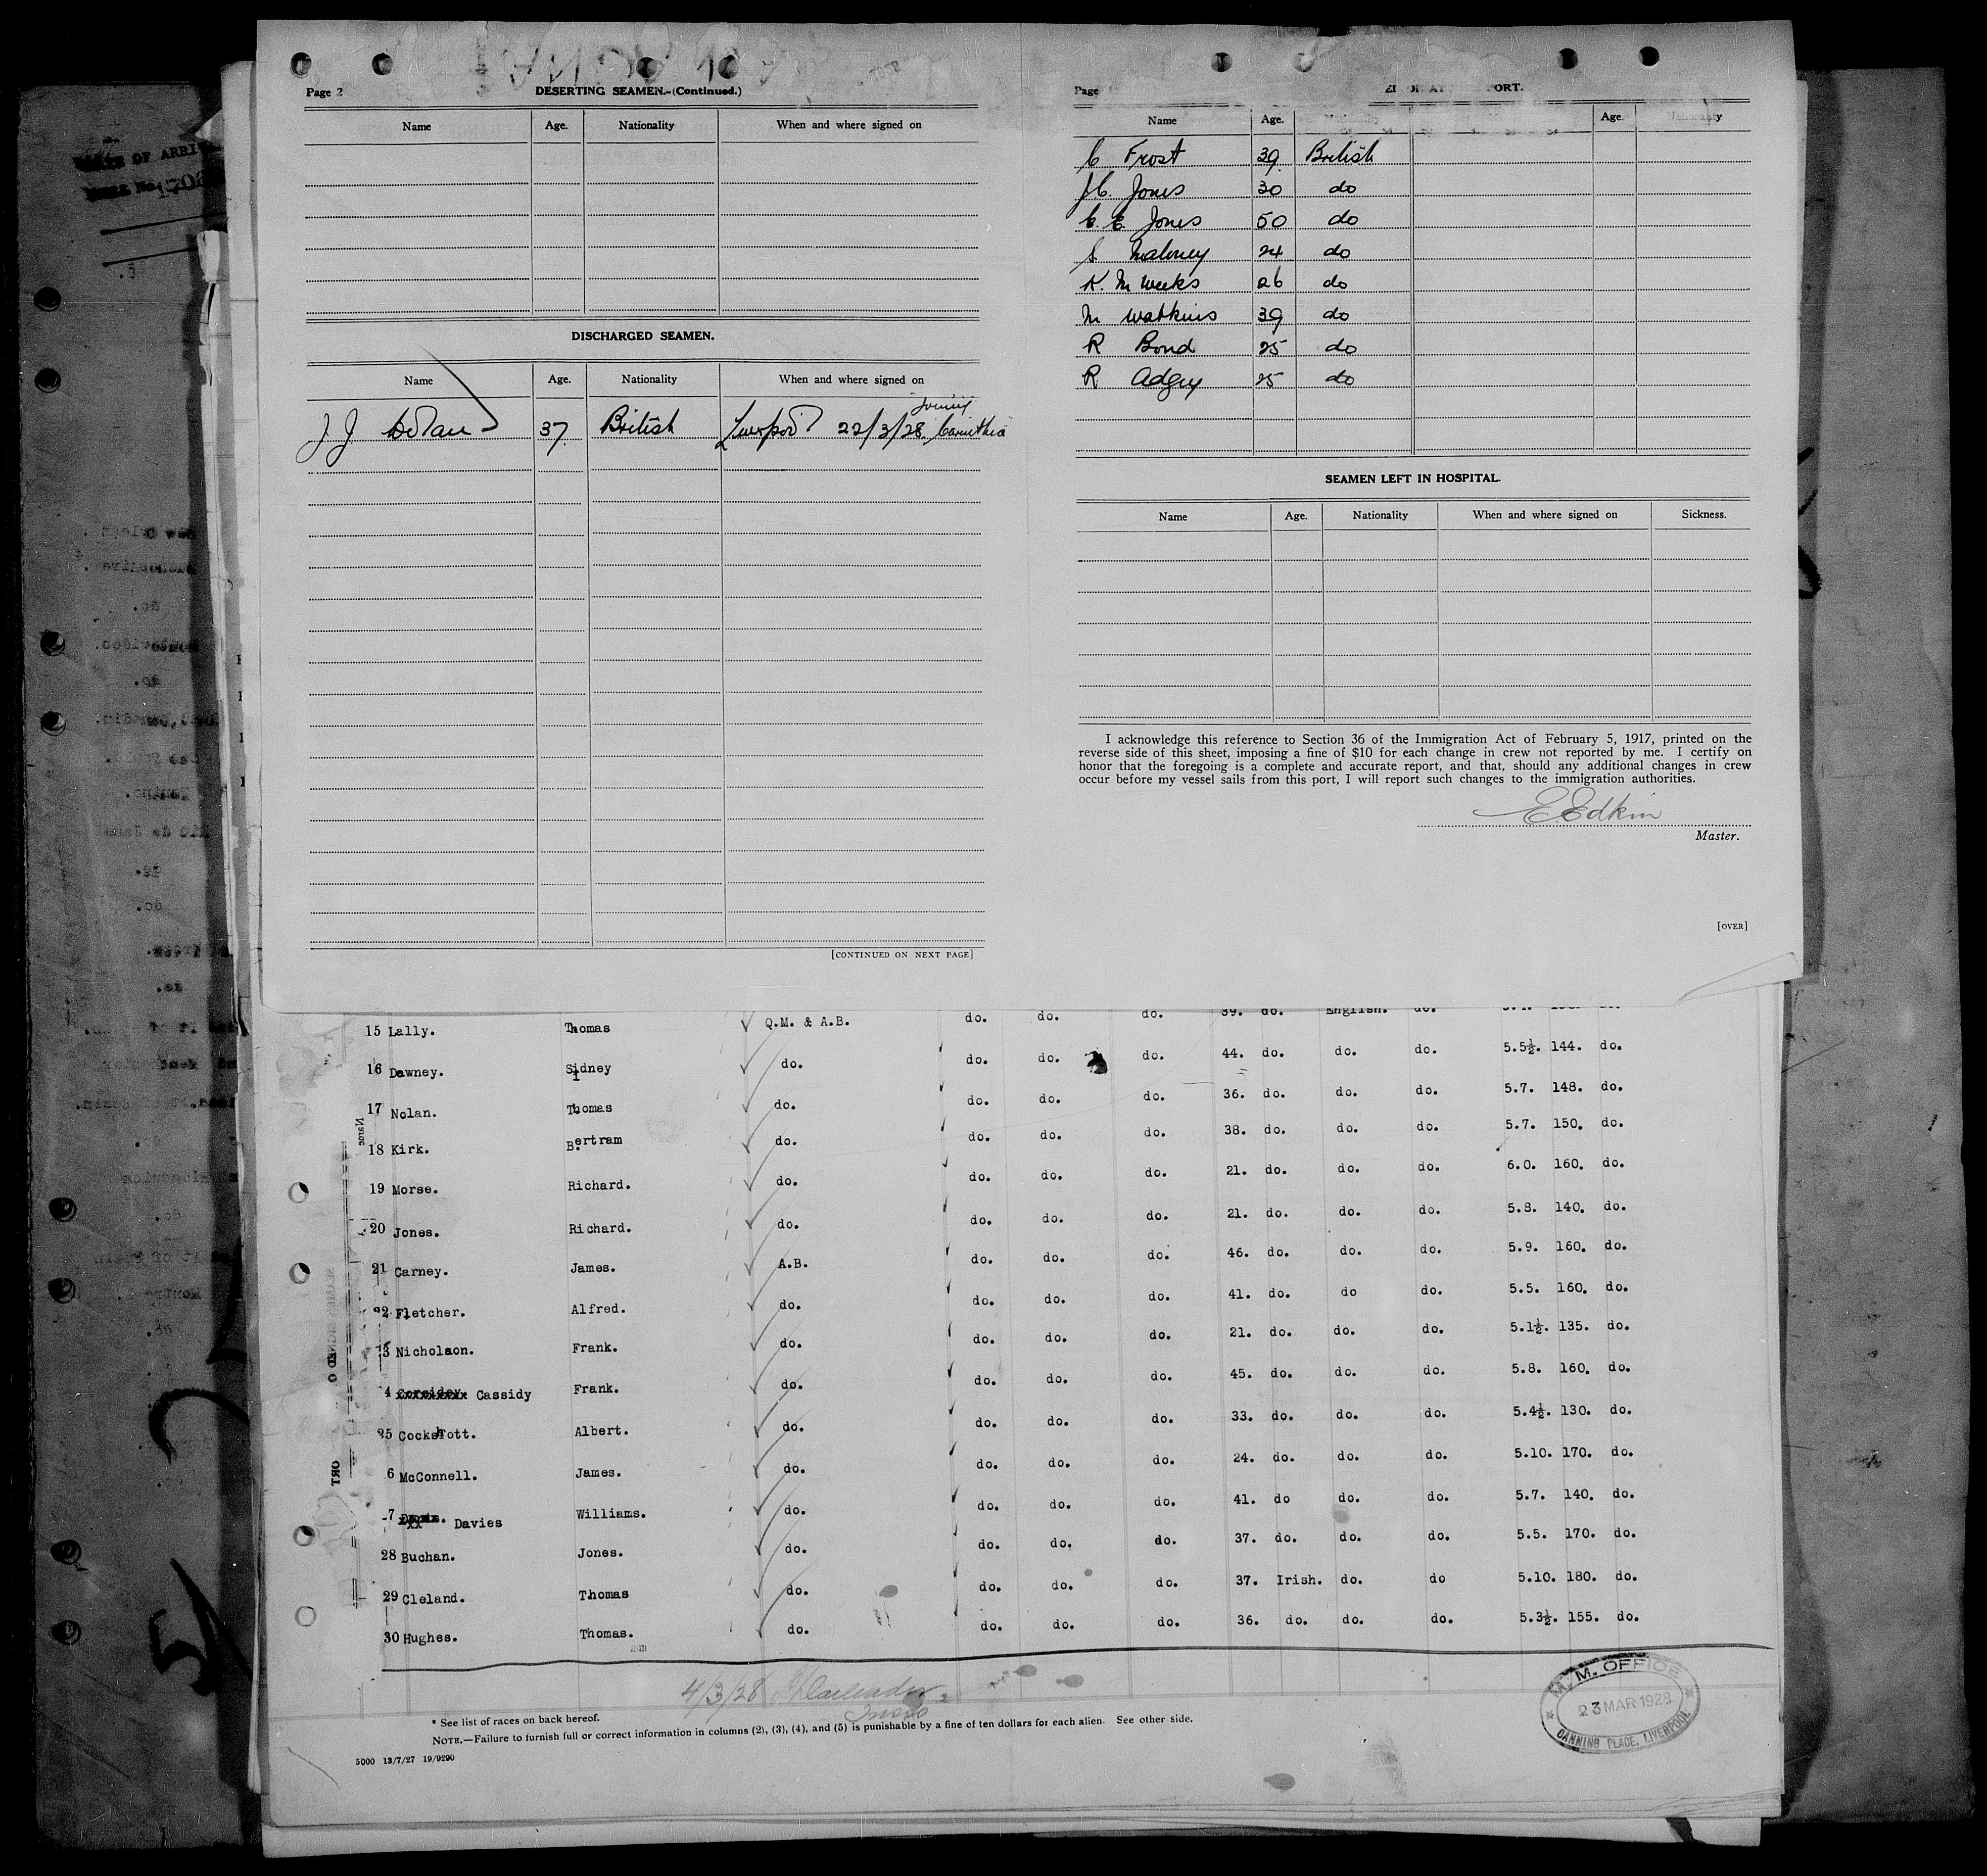 Page 2
DESERTING SEAMEN.-(Continued.)
Name Age. Nationality When and where signed on
DISCHARGED SEAMEN.
Name Age. Nationality When and where signed on
J. J. 37. British Liverpool 22/3/28. Carinthia
[CONTINUED ON NEXT PAGE]
Page
Name Age. Nationality Age. Nationality
C Frost 39. British
J.C. Jones 30 do
C. E. Jones 50 do
S Maloney 24 do
K. M Weeks 26 do
M Watkins 39 do
R Bond 25 do
R Adgey 25 do
SEAMEN LEFT IN HOSPITAL.
Name Age. Nationality When and where signed on Sickness.
I acknowledge this reference to Section 36 of the Immigration Act of February 5, 1917, printed on the
reverse side of this sheet, imposing a fine of $10 for each change in crew not reported by me. I certify on
honor that the foregoing is a complete and accurate report, and that, should any additional changes in crew
occur before my vessel sails from this port, I will report such changes to the immigration authorities.
E Edkin
Master.
[OVER]
15 Lally. Thomas Q.M. & A.B. do. do. do. 39. do. English. do.
16 Dawney. Sidney do. do. do. do. 44. do. do. do. 5.5½. 144. do.
17 Nolan. Thomas do. do. do. do. 36. do. do. do. 5.7. 148. do.
18 Kirk. Bertram do. do. do. do. 38. do. do. do. 5.7. 150. do.
19 Morse. Richard. do. do. do. do. 21. do. do. do. 6.0. 160. do.
20 Jones. Richard. do. do. do. do. 21. do. do. do. 5.8. 140. do.
21 Carney. James. A.B. do. do. do. 46. do. do. do. 5.9. 160. do.
22 Fletcher. Alfred. do. do. do. do. 41. do. do do. 5.5. 160. do.
3 Nicholson. Frank. do. do. do. do. 21. do. do. do. 5.1½. 135. do.
4 Cassidy Frank. do. do. do. do. 45. do. do. do. 5.8. 160. do.
25 Cockshott. Albert. do. do. do. do. 33. do. do. do. 5.4½. 130. do.
6 McConnell. James. do. do. do. do. 24. do. do. do. 5.10. 170. do.
7 Davies Williams. do. do. do. do. 41. do do. do. 5.7. 140. do.
28 Buchan. Jones. do. do. do. do. 37. do. do. do. 5.5. 170. do.
29 Cleland. Thomas do. do. do. do. 37. Irish. do. do 5.10. 180. do.
30 Hughes. Thomas. do. do. do. do. 36. do. do. do. 5.3½. 155. do.
4/3/28
* See list of races on back hereof.
NOTE.—Failure to furnish full or correct information in columns (2), (3), (4), and (5) is punishable by a fine of ten dollars for each alien. See other side.
5000 13/7/27 19/9290
M. M. OFFICE
23 MAR 1928
CANNING PLACE, LIVERPOOL